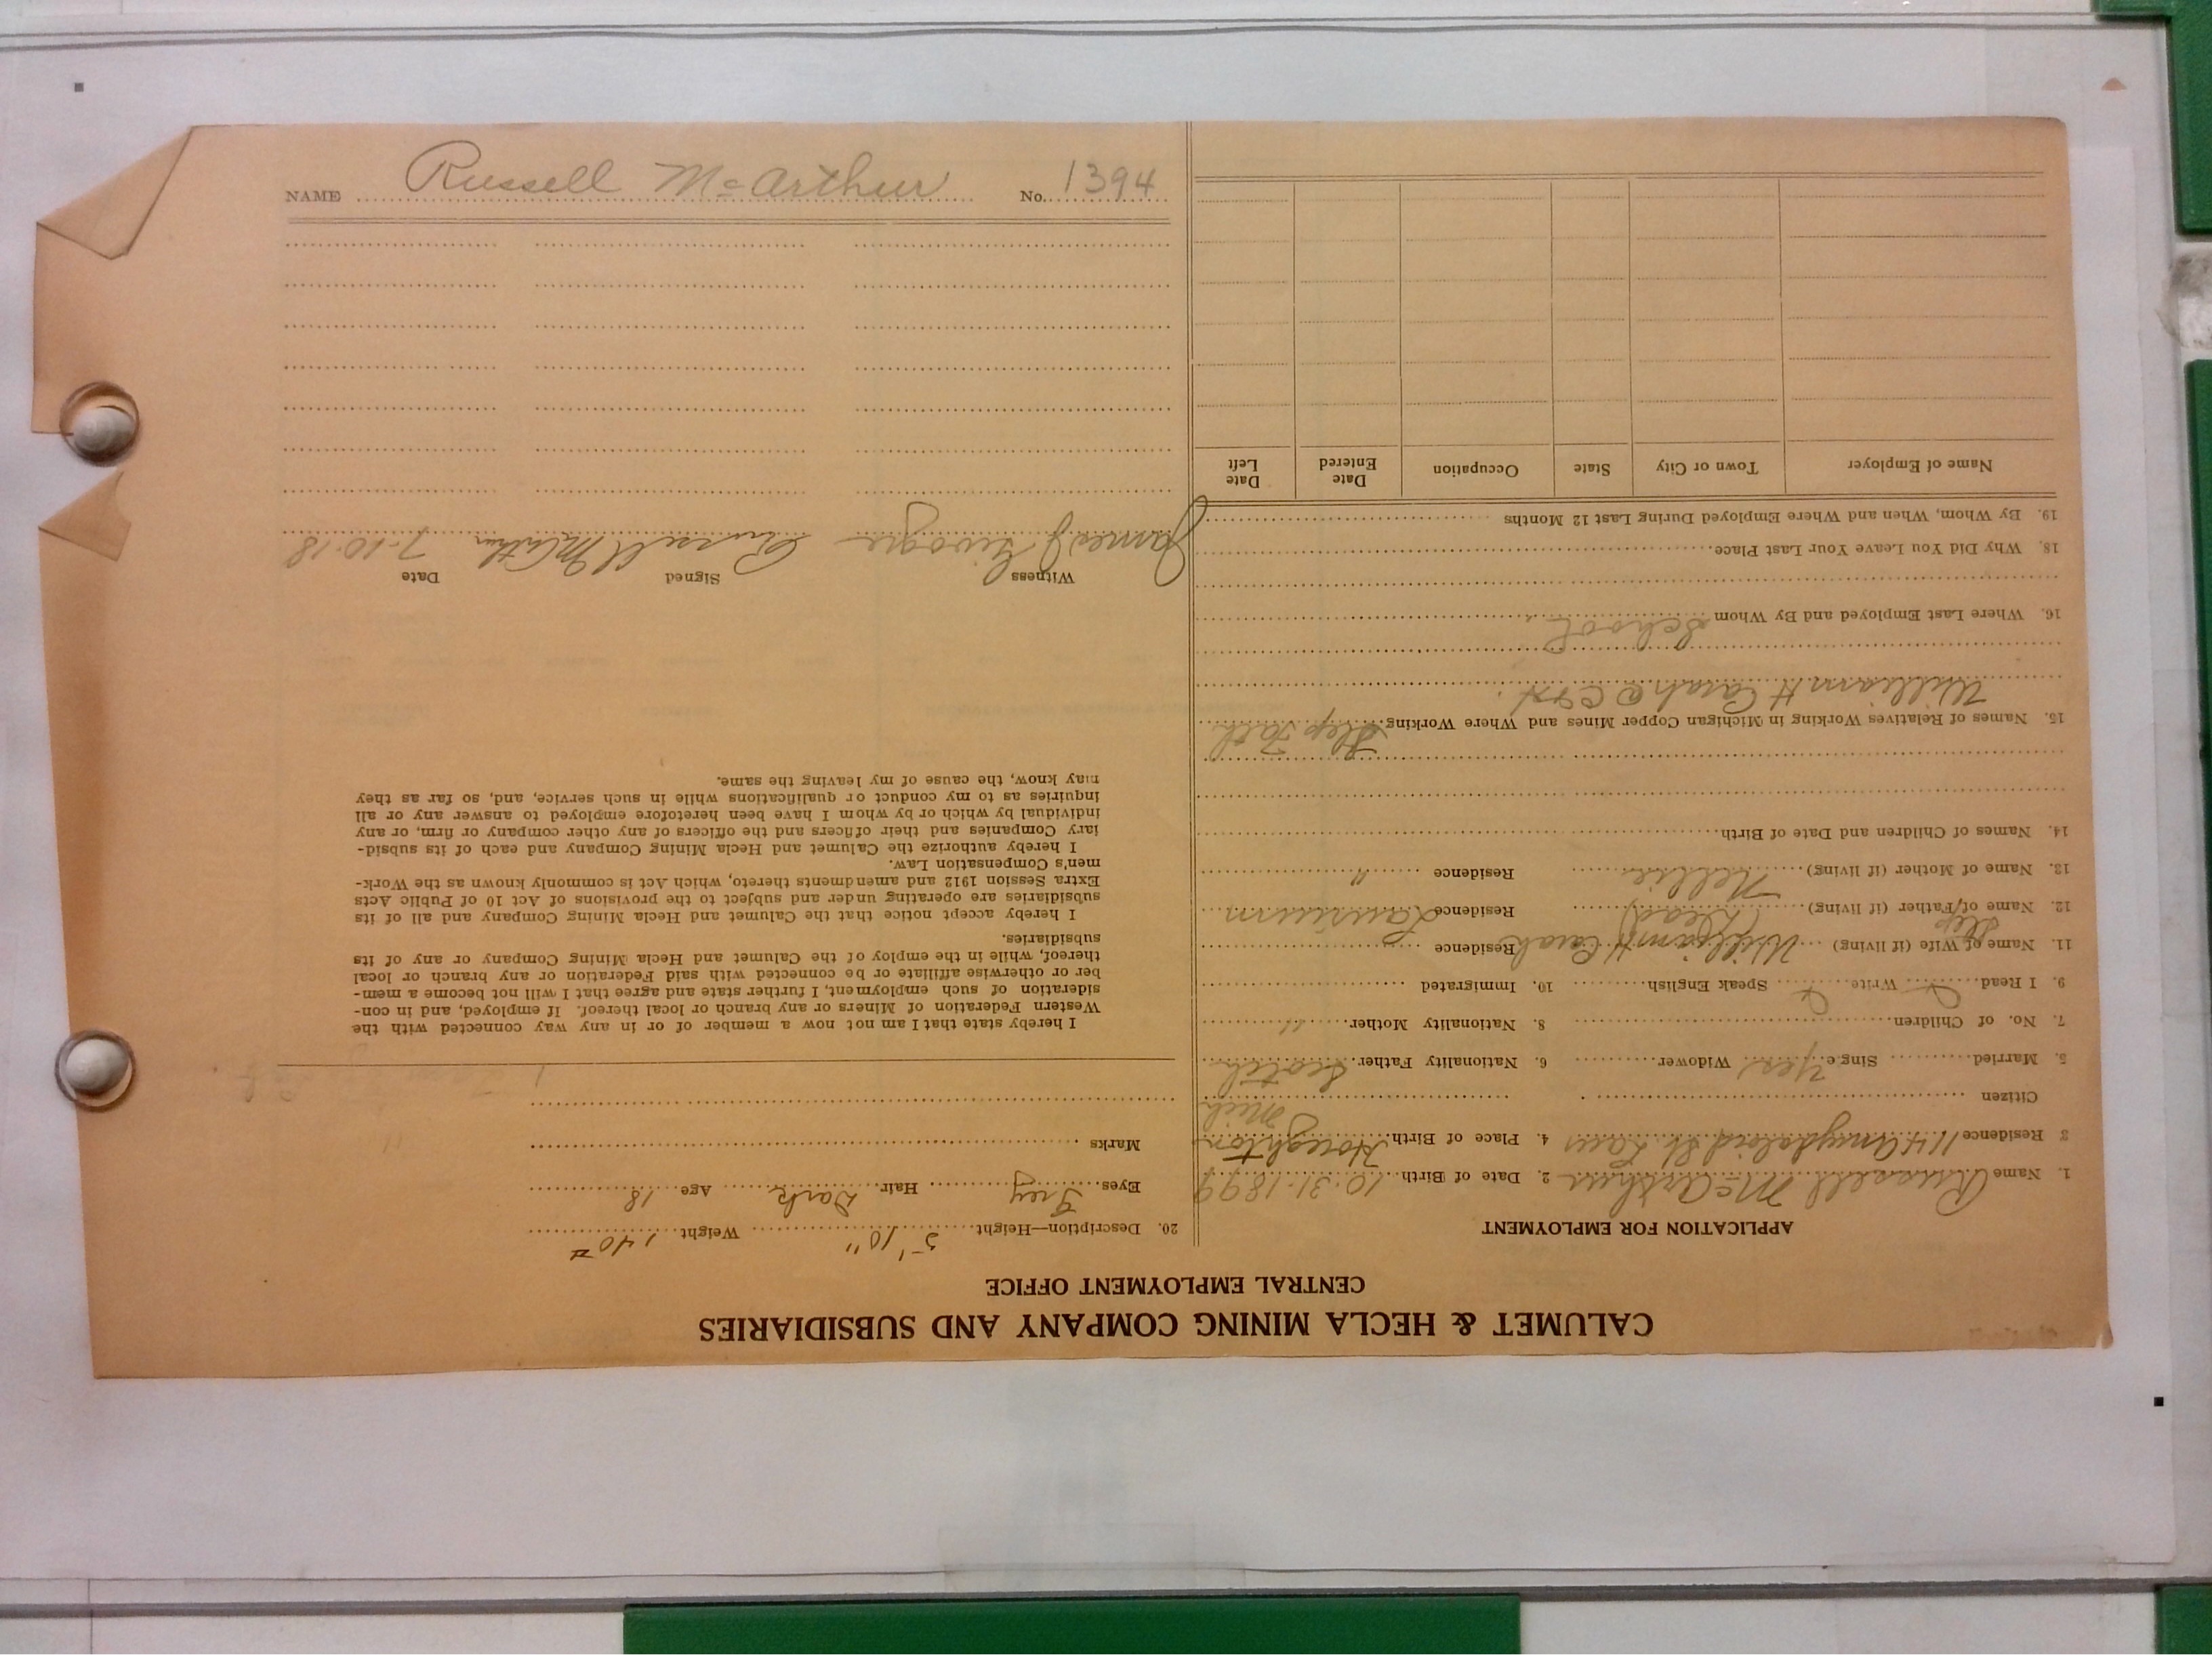 NAME Russell McArthur No. 1394
CALUMET & HECLA MINING COMPANY AND SUBSIDIARIES
CENTRAL EMPLOYMENT OFFICE
APPLICATION FOR EMPLOYMENT
1. Name Russell McArthur 2. Date of Birth 10-31-1899
3 Residence 114 Amygdaloid St Laur 4. Place of Birth Houghton
Mich
Citizen
5. Married Single Yes Widower 6. Nationality Father Scotch
7. No. of Children 8. Nationality Mother "
9. I Read Write Speak English 10. Immigrated
11. Name of Wife (if living) William H Residence
Step
12. Name of Father (if living) (Dead) Residence Laurium
13. Name of Mother (if living) Nellie Residence "
14. Names of Children and Date of Birth
15. Names of Relatives Working in Michigan Copper Mines and Where Working Step Fath
William H @ C&H.
16. Where Last Employed and By Whom School
18. Why Did You Leave Your Last Place
19. By Whom, When and Where Employed During Last 12 Months
Name of Employer Town or City State Occupation Date Entered Date Left
20. Description—Height 5' 10" Weight 140#
Eyes Grey Hair Dark Age 18
Marks
I hereby state that I am not now a member of or in any way connected with the
Western Federation of Miners or any branch or local thereof. If employed, and in con-
sideration of such employment, I further state and agree that I will not become a mem-
ber or otherwise affiliate or be connected with said Federation or any branch or local
thereof, while in the employ of the Calumet and Hecla Mining Company or any of its
subsidiaries.
I hereby accept notice that the Calumet and Hecla Mining Company and all of its
subsidiaries are operating under and subject to the provisions of Act 10 of Public Acts
Extra Session 1912 and amendments thereto, which Act is commonly known as the Work-
men's Compensation Law.
I hereby authorize the Calumet and Hecla Mining Company and each of its subsid-
iary Companies and their officers and the officers of any other company or firm, or any
individual by which or by whom I have been heretofore employed to answer any or all
inquiries as to my conduct or qualifications while in such service, and, so far as they
may know, the cause of my leaving the same.
Witness Signed Date
James J Russell McArthur 7-10-18